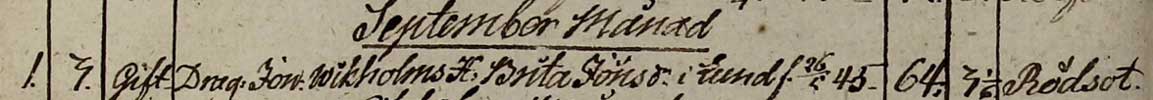 September Månad
1. 3. Gift Drag: Jon: Wikholms H. Brita Jönsdr i Lund f. 26/5 45 64. 3 1/6 Rödsot.